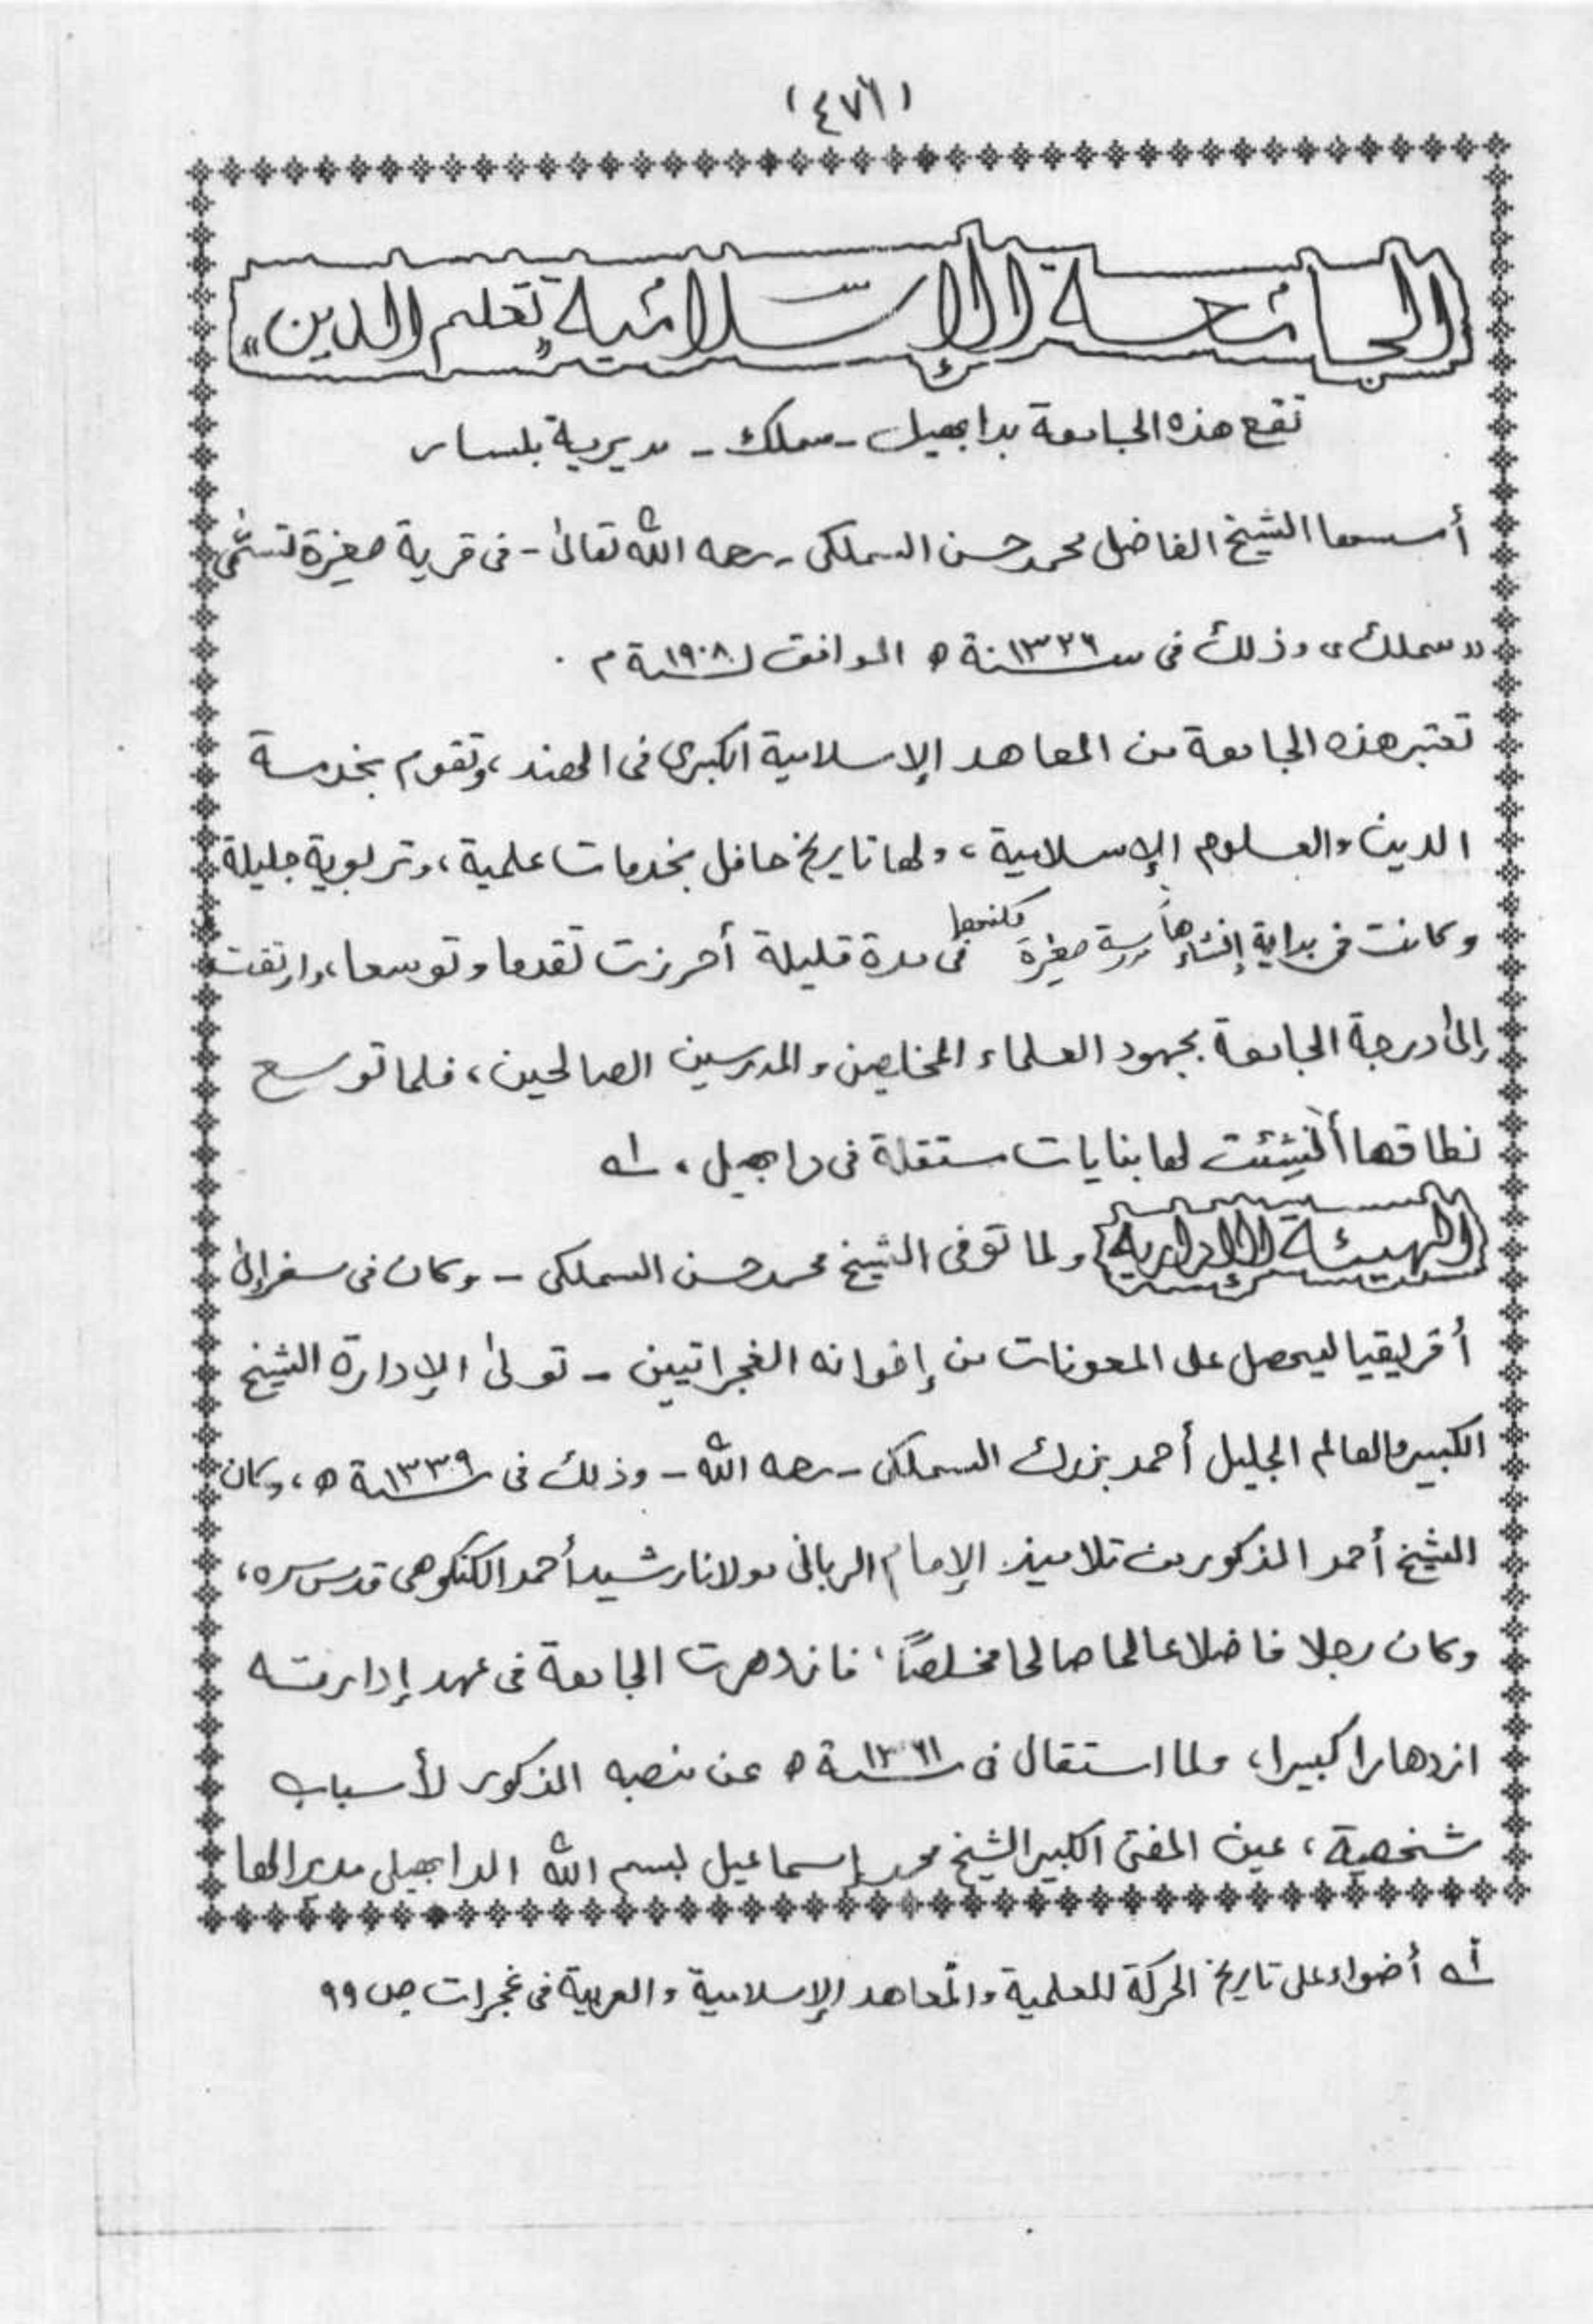 (٤٧٦)
الجامعة الإسلامية "تعليم الدين"
تقع هذه الجامعة بدابهيل - سملك - مديرية بلسار
أسسها الشيخ الفاضل محمد حسن السملكى - رحمه الله تعالىٰ - فى قرية صغيرة تسمّٰى
"سملك" وذلك فى سنة ١٣٢٦ ه الموافق لسنة ١٩٠٨ م .
تعتبر هذه الجامعة من المعاهد الإسلامية الكبرى فى الهند، وتقوم بخدمة
الدين والعلوم الإسلامية، ولها تاريخ حافل بخدمات علمية، وتربوية جليلة
وكانت فى بداية إنشاءها مدرسة صغيرة لكنها فى مدة قليلة أحرزت تقدما وتوسعا، وارتقت
إلىٰ درجة الجامعة بجهود العلماء المخلصين والمدرسين الصالحين، فلما توسع
نطاقها أُنشِئت لها بنايات مستقلة فى دابهيل، له
الهيئة الإدارية ولما توفى الشيخ محمد حسن السملكى - وكان فى سفر إلىٰ
أفريقيا ليحصل على المعونات من إخوانه الغجراتيين - تولىٰ الإدارة الشيخ
الكبير والعالم الجليل أحمد بزرك السملكى - رحمه الله - وذلك فى سنة ١٣٣٩ ه، وكان
الشيخ أحمد المذكور من تلاميذ الإمام الربانى مولانا رشيد أحمد الكنكوهى قدس سره،
وكان رجلا فاضلا عالما صالحا مخلصًا، فازدهرت الجامعة فى عهد إدارته
ازدهارا كبيرا، ولما استقال فى سنة ١٣٦١ ه عن منصبه المذكور لأسباب
شخصية، عين المفتى الكبير الشيخ محمد إسماعيل بسم الله الدابهيلى مديرا لها
له أضواء على تاريخ الحركة العلمية والمعاهد الإسلامية والعربية فى غجرات ص ٩٩